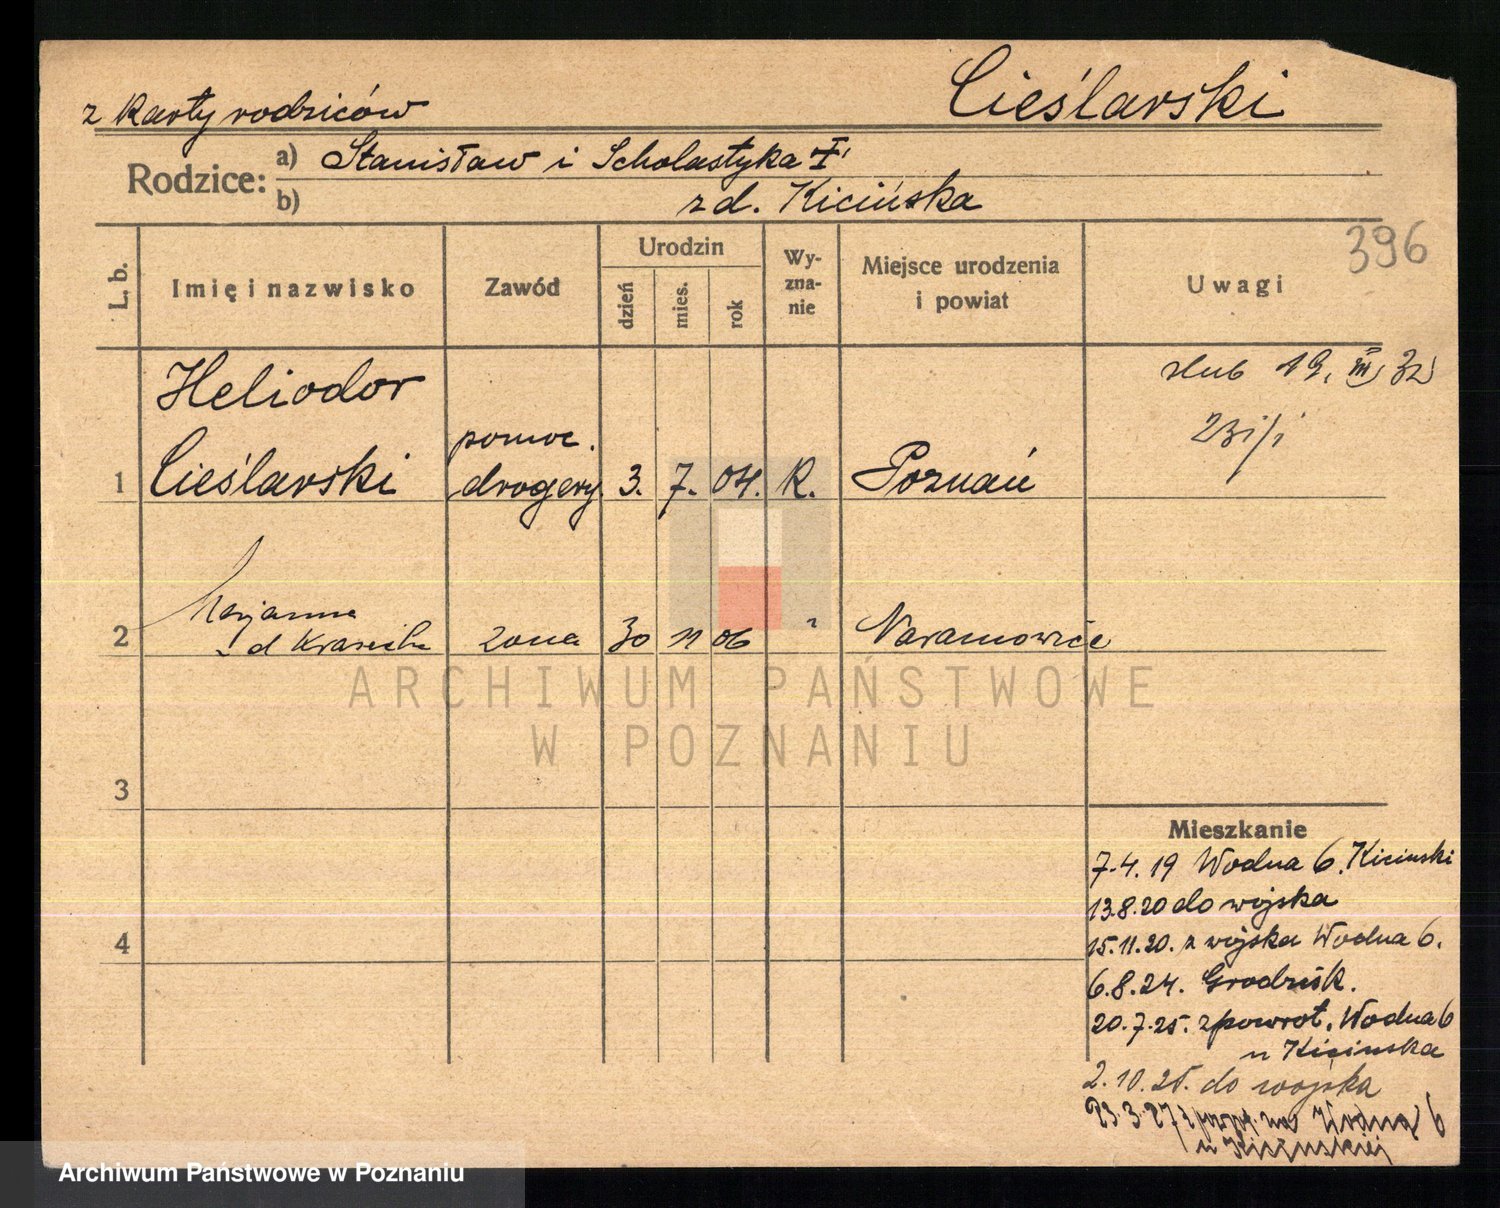 z Karty rodziców
Cieślarski
Rodzice:
a) Stanisław i Scholastyka
b) zd. Kicińska
396
L. b.
Imię i nazwisko
Zawód
Urodzin
dzień
mies.
rok
Wy-
zna-
nie
Miejsce urodzenia
i powiat
Uwagi
Heliodor
ślub 19. III 32
1 Cieślarski
pomoc.
drogery. 3. 7. 04. R. Poznań
Marjanna
2 żona 30 11 06 Naramowice
ARCHIWUM PAŃSTWOWE
W POZNANIU
3
4
Mieszkanie
7.4.19 Wodna 6. Kicinski
13.8.20 do wojska
15.11.20. z wojska Wodna 6.
6.8.24. Grodzisk.
20.7.25. zpowrot. Wodna 6
u Kicinska
2.10.25. do wojska
23.3.27 na Wodna 6
u Kicinskiej
Archiwum Państwowe w Poznaniu